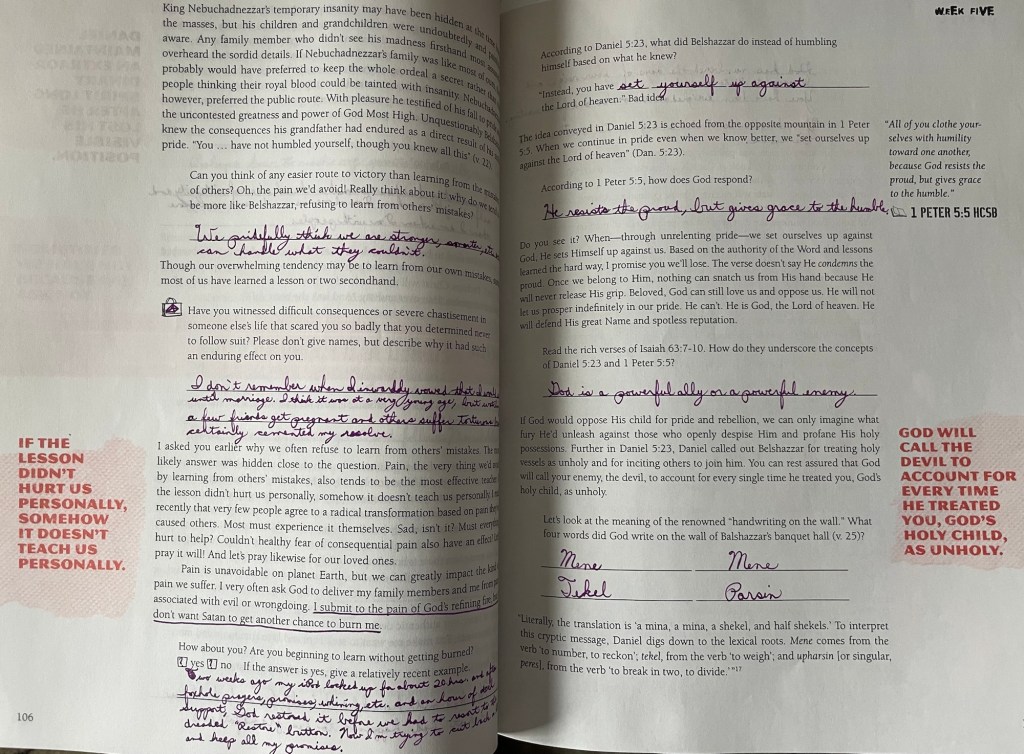 King Nebuchadnezzar's temporary insanity may have been hidden at the
the masses, but his children and grandchildren were undoubtedly and
aware. Any family member who didn't see his madness firsthand most
overheard the sordid details. If Nebuchadnezzar's family was like most of
probably would have preferred to keep the whole ordeal a secret rather than
people thinking their royal blood could be tainted with insanity.
however, preferred the public route. With pleasure he testified of his fall
the uncontested greatness and power of God Most High. Unquestionably
knew the consequences his grandfather had endured as a direct result of his
pride. "You ... have not humbled yourself, though you knew all this" (v. 22).
Can you think of any easier route to victory than learning from the
of others? Oh, the pain we'd avoid! Really think about it: why do we
be more like Belshazzar, refusing to learn from others' mistakes?
We pridefully think we are stronger, smarter, etc.
can handle what they couldn't.
Though our overwhelming tendency may be to learn from our own mistakes,
most of us have learned a lesson or two secondhand.
Have you witnessed difficult consequences or severe chastisement in
someone else's life that scared you so badly that you determined never
to follow suit? Please don't give names, but describe why it had such
an enduring effect on you.
I don't remember when I inwardly vowed that I
until marriage. I think it was at a very young age, but
a few friends get pregnant and others suffer
certainly cemented my resolve.
IF THE
LESSON
DIDN'T
HURT US
PERSONALLY,
SOMEHOW
IT DOESN'T
TEACH US
PERSONALLY.
I asked you earlier why we often refuse to learn from others' mistakes. The
likely answer was hidden close to the question. Pain, the very thing we'd
by learning from others' mistakes, also tends to be the most effective
the lesson didn't hurt us personally, somehow it doesn't teach us personally.
recently that very few people agree to a radical transformation based on pain
caused others. Most must experience it themselves. Sad, isn't it? Must
hurt to help? Couldn't healthy fear of consequential pain also have an effect?
pray it will! And let's pray likewise for our loved ones.
Pain is unavoidable on planet Earth, but we can greatly impact the kind
pain we suffer. I very often ask God to deliver my family members and me from
associated with evil or wrongdoing. I submit to the pain of God's refining fire,
don't want Satan to get another chance to burn me.
How about you? Are you beginning to learn without getting burned?
yes no If the answer is yes, give a relatively recent example.
Two weeks ago my iPod locked up for about 20 hrs and after
foxhole prayers, promises, whining, etc. and an hour of
support, God restored it before we had to resort to the
dreaded "Restore" button. Now I'm trying to cut back
and keep all my promises.
106
WEEK FIVE
According to Daniel 5:23, what did Belshazzar do instead of humbling
himself based on what he knew?
"Instead, you have set yourself up against
the Lord of heaven." Bad idea.
The idea conveyed in Daniel 5:23 is echoed from the opposite mountain in 1 Peter
5:5. When we continue in pride even when we know better, we "set ourselves up
against the Lord of heaven" (Dan. 5:23).
"All of you clothe your-
selves with humility
toward one another,
because God resists the
proud, but gives grace
to the humble."
1 PETER 5:5 HCSB
According to 1 Peter 5:5, how does God respond?
He resists the proud, but gives grace to the humble.
Do you see it? When—through unrelenting pride—we set ourselves up against
God, He sets Himself up against us. Based on the authority of the Word and lessons
learned the hard way, I promise you we'll lose. The verse doesn't say He condemns the
proud. Once we belong to Him, nothing can snatch us from His hand because He
will never release His grip. Beloved, God can still love us and oppose us. He will not
let us prosper indefinitely in our pride. He can't. He is God, the Lord of heaven. He
will defend His great Name and spotless reputation.
Read the rich verses of Isaiah 63:7-10. How do they underscore the concepts
of Daniel 5:23 and 1 Peter 5:5?
God is a powerful ally or a powerful enemy.
If God would oppose His child for pride and rebellion, we can only imagine what
fury He'd unleash against those who openly despise Him and profane His holy
possessions. Further in Daniel 5:23, Daniel called out Belshazzar for treating holy
vessels as unholy and for inciting others to join him. You can rest assured that God
will call your enemy, the devil, to account for every single time he treated you, God's
holy child, as unholy.
GOD WILL
CALL THE
DEVIL TO
ACCOUNT FOR
EVERY TIME
HE TREATED
YOU, GOD'S
HOLY CHILD,
AS UNHOLY.
Let's look at the meaning of the renowned "handwriting on the wall." What
four words did God write on the wall of Balshazzar's banquet hall (v. 25)?
Mene Mene
Tekel Parsin
"Literally, the translation is 'a mina, a mina, a shekel, and half shekels.' To interpret
this cryptic message, Daniel digs down to the lexical roots. Mene comes from the
verb 'to number, to reckon'; tekel, from the verb 'to weigh'; and upharsin [or singular,
peres], from the verb 'to break in two, to divide.'"17